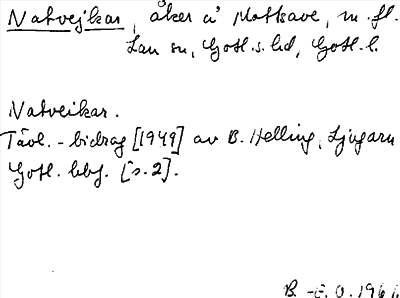 Natvejkar, åker å Mattsave, m. fl.
Lau sn, Gotl. s. hd, Gotl. l.
Natveikar.
Tävl.-bidrag [1949] av B. Helling, Ljugarn
Gotl. hbg. [s. 2].
B.-E. O. 196